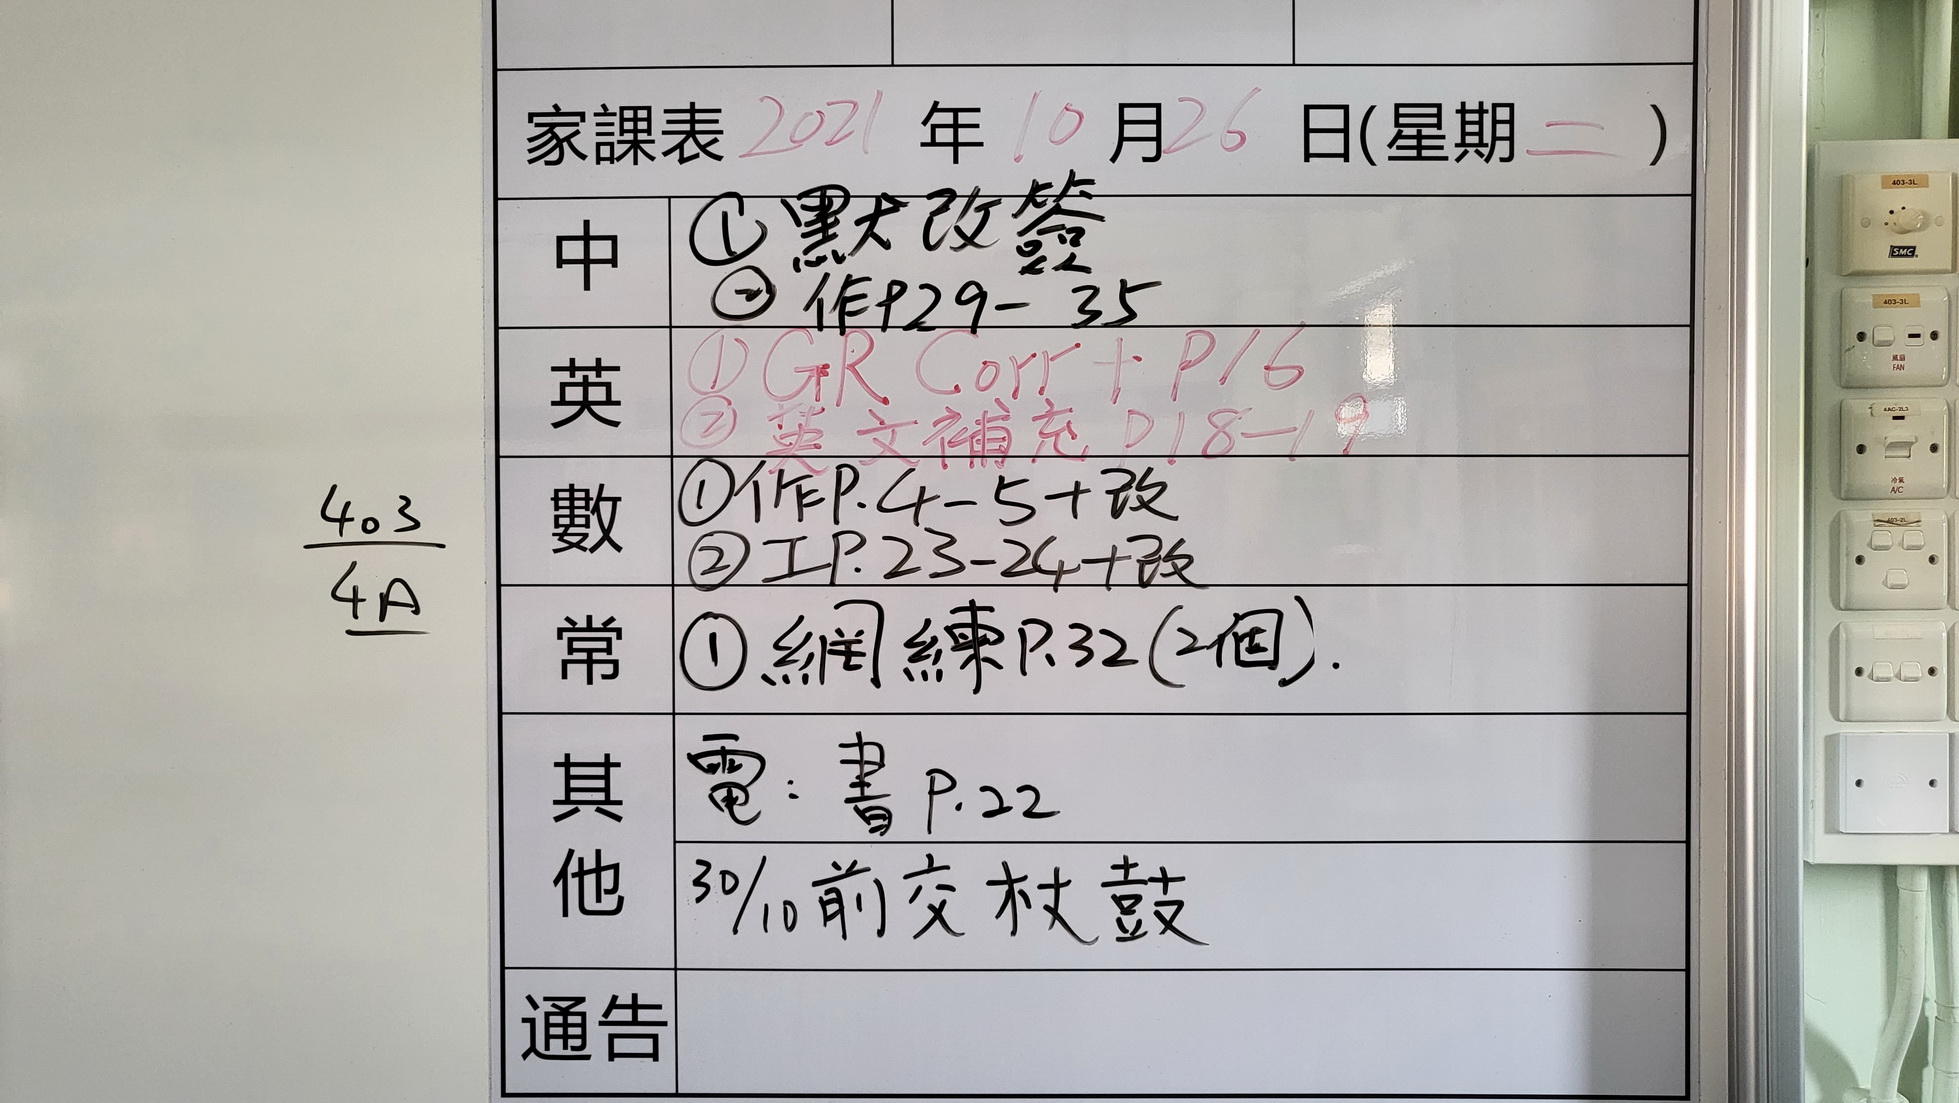 家課表 2021 年 10 月 26 日(星期 二 )
中
① 默改簽
② 作P29-35
英
① GR Corr + P16
② 英文補充 P18-19
數
① 作P.4-5+改
② 工P.23-24+改
常
① 網練P.32(2個).
其他
電：書 P.22
30/10前交杖鼓
通告
403
4A
403-3L
SMC
403-3L
風扇
FAN
4AC-2L3
冷氣
A/C
403-2L